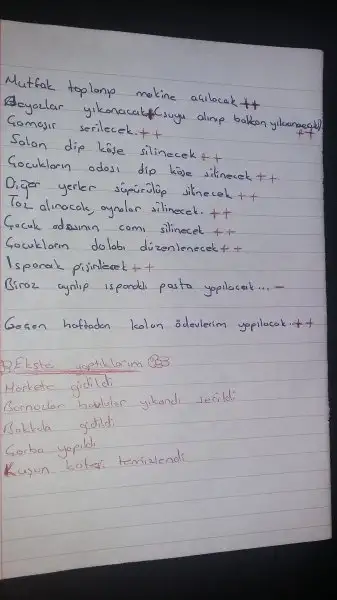 Mutfak toplanıp makine açılacak ++
Beyazlar yıkanacak (suyu alınıp balkon yıkanacak) ++
Çamaşır serilecek. ++
Salon dip köşe silinecek ++
Çocukların odası dip köşe silinecek ++
Diğer yerler süpürülüp silinecek ++
Toz alınacak, aynalar silinecek. ++
Çocuk odasının camı silinecek ++
Çocukların dolabı düzenlenecek ++
Ispanak pişirilecek ++
Biraz ayrılıp ıspanaklı pasta yapılacak... -
Geçen haftadan kalan ödevlerim yapılacak. ++
Ekste yaptıklarım
Markete gidildi
Bornozlar havlular yıkandı serildi
Bakkala gidildi
Çorba yapıldı
Kuşun kafesi temizlendi